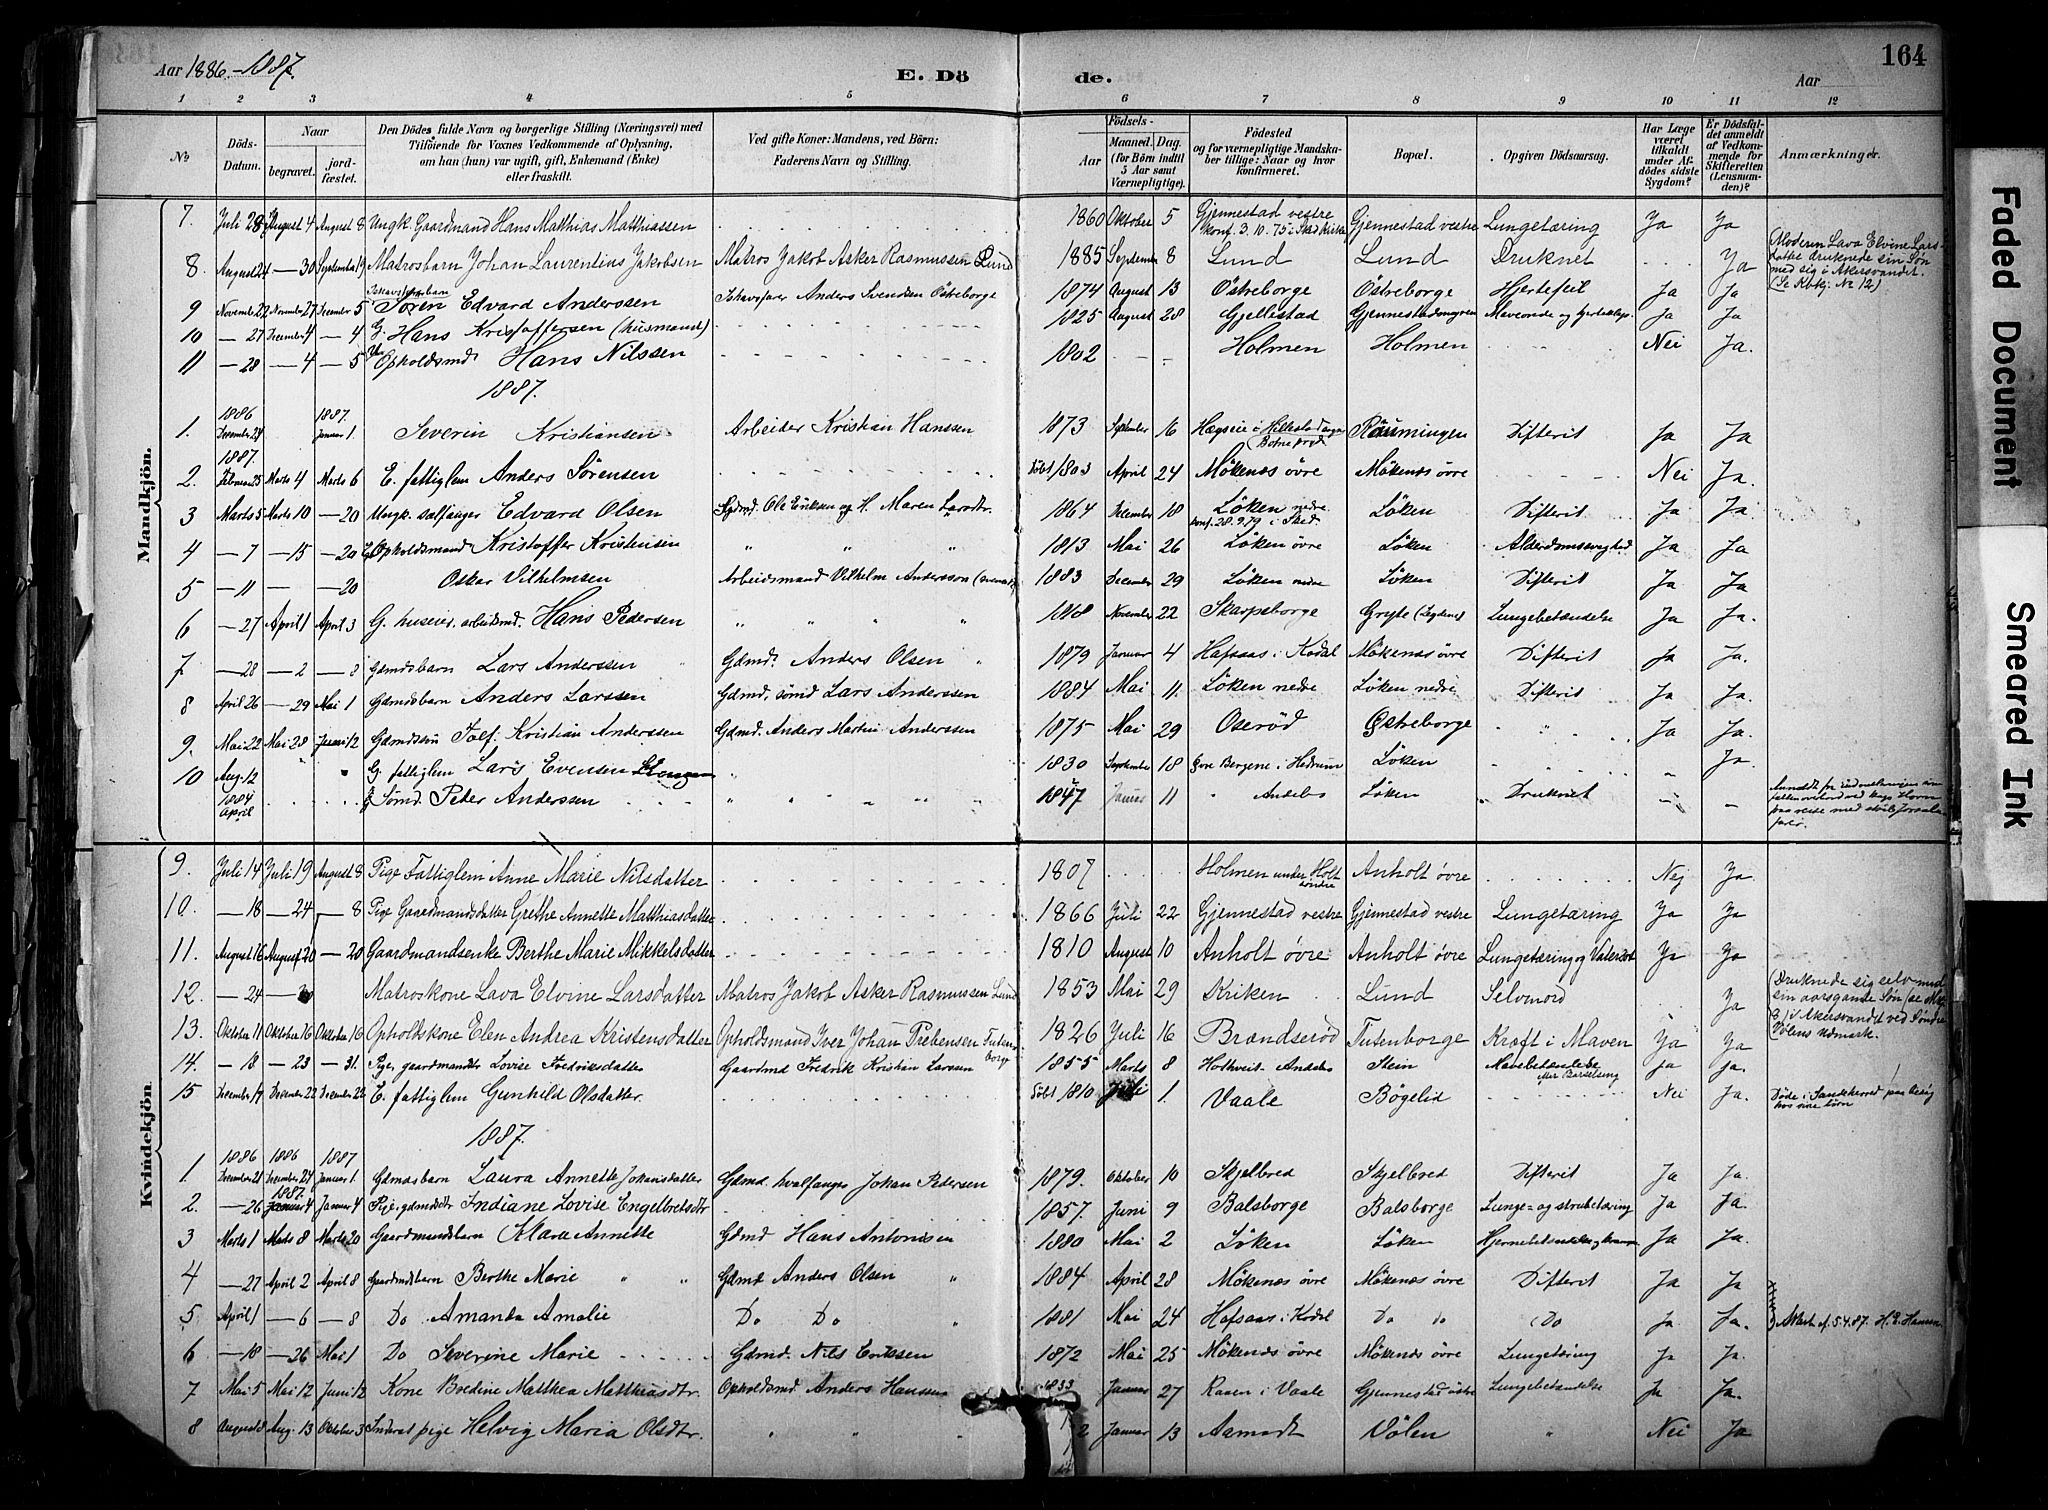 164
Aar 1886.-1887.
E. Dö
de.
Aar
1 2 3 4 5 6 7 8 9 10 11 12
No
Döds-Datum.
Naar
begravet.
jord-fæstet.
Den Dödes fulde Navn og borgerlige Stilling (Næringsvei) med
Tilföiende for Voxnes Vedkommende af Oplysning,
om han (hun) var ugift, gift, Enkemand (Enke)
eller fraskilt.
Ved gifte Koner: Mandens, ved Börn:
Faderens Navn og Stilling.
Födsels-
Aar
Maaned. Dag.
(for Börn indtil 5 Aar samt Værnepligtige).
Födested
og for værnepligtige Mandska-
ber tillige: Naar og hvor
konfirmeret.
Bopæl.
Opgiven Dödsaarsag.
Har Læge været tilkaldt under Af-dödes sidste Sygdom?
Er Dödsfal-det anmeldt af Vedkom-mende for Skifteretten (Lensman-den)?
Anmærkninger.
Mandkjön.
7. Juli 28 August 4 August 8 Ungk. Gaardmand Hans Matthias Matthiassen 1860 Oktober 5 Gjennestad vestre konf. 3.10.75 i Skee Kirke Gjennestad vestre Lungetæring Ja Ja
8. August 24 — 30 September 19 Matrosbarn Johan Laurentius Jakobsen Matros Jakob Asker Rasmussen Lund 1885 September 8 Lund Lund Druknet Ja Moderen Lava Elvine Lars-datter druknede sin Søn med sig i Akersvandet. (Se Kvkj. Nr 12)
9 November 22 November 27 December 5 Ishavsfarerbarn Søren Edvard Anderssen Ishavsfarer Anders Svendsen Østreborge 1874 August 13 Østreborge Østreborge Hjertefeil Ja Ja
10 — 27 December 4 — 4 G. Hans Kristoffersen (husmand) 1825 August 28 Gjellestad Gjennestadmyren Maveonde og Ja Ja
11 — 28 — 4 — 5 Opholdsmd Hans Nilssen 1802 Holmen Holmen Nei Ja.
1887.
1. 1886 December 24 1887. Januar 1 Severin Kristiansen Arbeider Kristian Hanssen 1873 September 16 Hægseie i Hillestad Botne Raumingen Difterit Ja Ja
2. 1887. Februar 25 Marts 4 Marts 6 E. fattiglem Anders Sörensen Døbt 1803 April 24 Møkenæs øvre Møkenæs øvre Nei Ja.
3 Marts 5 Marts 10 — 20 Ungk. sælfanger Edvard Olsen Gdmd. Ole Eriksen og H. Maren Larsdtr. 1864 December 18 Løken nedre konf. 28.9.79 i Sked Løken Difterit Ja Ja
4 — 7 — 15 — 20 Opholdsmand Kristoffer Kristensen " " " 1813 Mai 26 Løken øvre Løken Alderdomssvaghed Ja Ja
5 — 11 — — 20 Oskar Vilhelmsen Arbeidsmand Vilhelm Andersson 1883 December 29 Løken nedre Løken Difterit Ja Ja
6 — 27 April 1 April 3 G. huseier, arbeidsmd. Hans Pedersen " " " 1818 November 22 Skarpeborge Gryte Lungebetændelse Ja Ja.
7 — 28 — 2 — 8 Gdmdsbarn Lars Anderssen Gdmd. Anders Olsen 1879 Januar 4 Hafsaas i Kodal Møkenæs øvre Difterit Ja Ja.
8 April 26 — 29 Mai 1 Gdmdsbarn Anders Larssen Gdmd. sømd Lars Anderssen 1884 Mai 11. Løken nedre Løken nedre Difterit Ja Ja.
9. Mai 22 Mai 28 Juni 12 Gdmdssøn Jolf. Kristian Anderssen Gdmd. Anders Martin Anderssen 1875 Mai 29 Oserød Østreborge " Ja Ja.
10 Aug. 12 " " G. fattiglem Lars Evensen " 1830 September 18 Bergene i Hedrum Løken Ja.
1884 April Sømd. Peter Anderssen " " " 1847 Januar 11 " Andebu Løken Druknet
Kvindekjön.
9. Juli 14 Juli 19 August 8 Pige Fattiglem Anne Marie Nilsdatter 1807 Holmen under Holt søndre Anholt øvre Nej Ja
10. — 18 — 24 — 8 Pige Gaardmandsdatter Grethe Annette Matthiasdatter 1866 Juli 22 Gjennestad vestre Gjennestad vestre Lungetæring Ja Ja
11. August 16 August 20 — 20 Gaardmandsenke Berthe Marie Mikkelsdatter 1810 August 10 Anholt øvre Anholt øvre Lungetæring og Vatersot Ja Ja
12. — 24 — 30 Matroskone Lava Elvine Larsdatter Matros Jakob Asker Rasmussen Lund 1853 Mai 29 Kriken Lund Selvmord Ja (Druknede sig selv med sin aarsgamle Søn (se Mkj. 8) i Akersvandet ved Søndre Vølens Udmark.
13. Oktober 11 Oktober 16 Oktober 16 Opholtskone Elen Andrea Kristensdatter Opholdsmand Iver Johan Prebensen Tutenborge 1826 Juli 16 Brandserød Tutenborge Kræft i Maven Ja Ja
14. — 18 — 23 — 31. Pige, gaardmandsdtr Lovise Fredriksdatter Gaardmd Fredrik Kristian Larssen 1855 Marts 8 Holtveit Andebu Stein Mavebetændelse efter Barselseng Ja Ja.
15 December 17 December 22 December 22 E. fattiglem Gunhild Olsdatter. Døbt 1810. Juli 1 Vaale Bøgelid Nei Ja. Døde i Sandeherred paa besøg hos sine børn
1887.
1 1886 December 21 1886 December 24 1887 Januar 1 Gdmdsbarn Laura Annette Johansdatter Gdmd. hvalfanger Johan Pedersen 1879. Oktober 10 Skjelbred Skjelbred Difterit Ja Ja.
2. — 26 1887. Januar 4 Januar 4 Pige, gdmdsdtr Indiane Lovise Engelbretsdtr 1857. Juni 9 Balsborge Balsborge Lunge- og strubetæring Ja Ja.
3 Marts 1 Marts 8 Marts 20 Gaardmandsbarn Klara Annette Gdmd Hans Antonisen 1880 Mai 2 Løken Løken Hjernebetændelse og Ja Ja.
4 — 27 April 2 April 8 Gaardmdsbarn Berthe Marie " " Gdmd Anders Olsen " 1884 April 28 Møkenæs øvre Møkenæs øvre Difterit Ja Ja
5 April 1 — 6 — 8 Do Amanda Amalie Do Do " 1881 Mai 24 Hafsaas i Kodal Do do Do Ja Ja. Attest af 5.4.87. H. E. Hansen
6 — 18 — 26 Mai 1 Do Severine Marie Gdmd. Nils Eriksen 1872 Mai 25 Møkenæs øvre Møkenæs øvre Lungetæring Ja Ja.
7 Mai 5 Mai 12 Juni 12 Kone Bredine Mathea Matthiasdtr. Opholdsmd. Anders Hanssen 1833 Januar 27 Raaen i Vaale Gjennestad østre Lungebetændelse Ja Ja.
8 August 8 Aug. 13 Oktober 3 Inderst pige Helvig Maria Olsdtr. " " " 2 Januar 13 Aamodt Vølen " Nei Ja
Faded Document
Smeared Ink